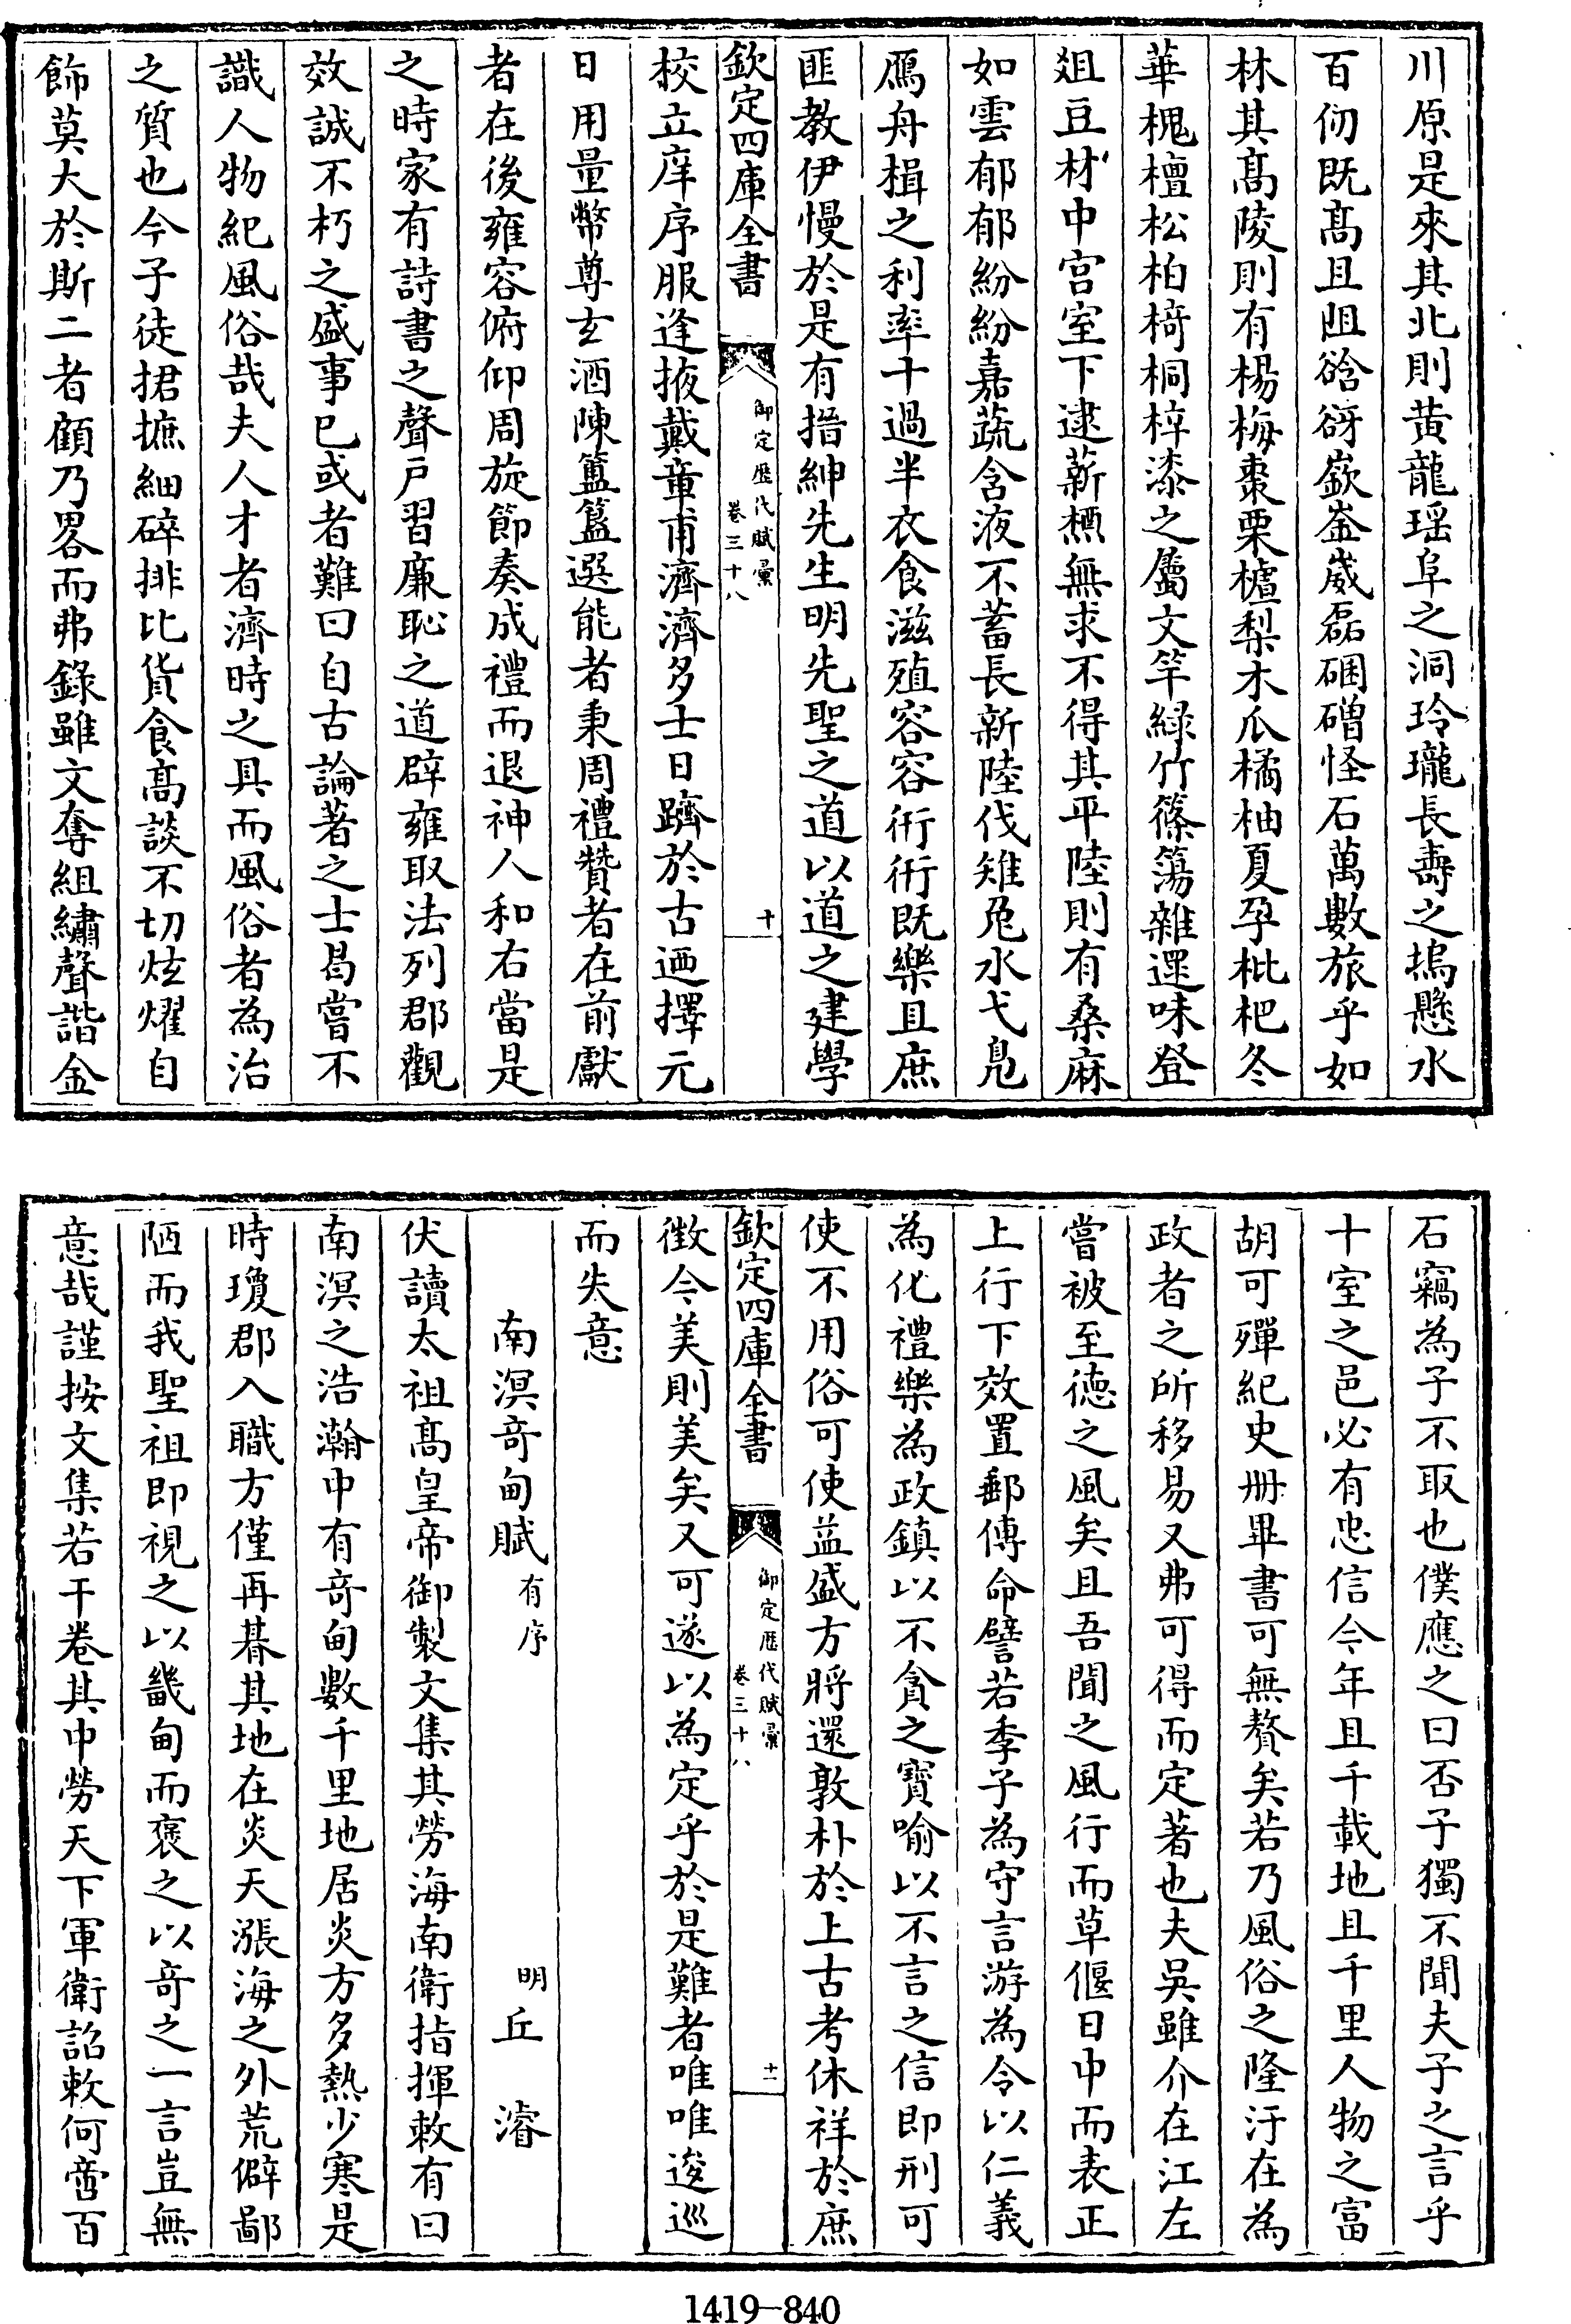 川原是來其北則黄龍瑶阜之洞玲瓏長壽之塢懸水
百仞既髙且阻谽谺嶔崟崴磊硱磳怪石萬數旅乎如
林其髙陵則有楊梅棗栗樝梨木瓜橘柚夏孕枇杷冬
華槐檀松柏椅桐梓漆之屬文竿緑竹篠簜雜遝味登
爼豆材中宫室下逮薪槱無求不得其平陸則有桑麻
如雲郁郁紛紛嘉蔬含液不蓄長新陸伐雉兔水弋鳬
鴈舟楫之利率十過半衣食滋殖容容衎衎既樂且庶
匪教伊慢於是有搢紳先生明先聖之道以道之建學
欽定四庫全書
御定歴代賦彙
卷三十八
十
校立庠序服逢掖戴章甫濟濟多士日躋於古迺擇元
日用量幣尊玄酒陳簠簋選能者秉周禮贊者在前獻
者在後雍容俯仰周旋節奏成禮而退神人和右當是
之時家有詩書之聲戸習廉恥之道辟雍取法列郡觀
效誠不朽之盛事已或者難曰自古論著之士曷嘗不
識人物紀風俗哉夫人才者濟時之具而風俗者為治
之質也今子徒捃摭細碎排比貨食髙談不切炫燿自
飾莫大於斯二者顧乃畧而弗錄雖文奪組繡聲諧金
石竊為子不取也僕應之曰否子獨不聞夫子之言乎
十室之邑必有忠信今年且千載地且千里人物之富
胡可殫紀史册畢書可無贅矣若乃風俗之隆汙在為
政者之所移易又弗可得而定著也夫吳雖介在江左
嘗被至徳之風矣且吾聞之風行而草偃日中而表正
上行下效置郵傳命譬若季子為守言游為令以仁義
為化禮樂為政鎮以不貪之寳喻以不言之信即刑可
使不用俗可使益盛方將還敦朴於上古考休祥於庶
欽定四庫全書
御定歴代賦彙
卷三十八
十一
徴今美則美矣又可遂以為定乎於是難者唯唯逡巡
而失意
南溟竒甸賦有序
明丘濬
伏讀太祖髙皇帝御製文集其勞海南衛指揮敕有曰
南溟之浩瀚中有竒甸數千里地居炎方多熱少寒是
時瓊郡入職方僅再朞其地在炎天漲海之外荒僻鄙
陋而我聖祖即視之以畿甸而褒之以竒之一言豈無
意哉謹按文集若干卷其中勞天下軍衛詔敕何啻百
1419-840